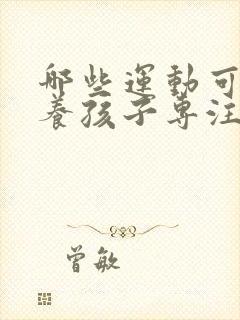 哪些運動可
養孩子專注
曾敏